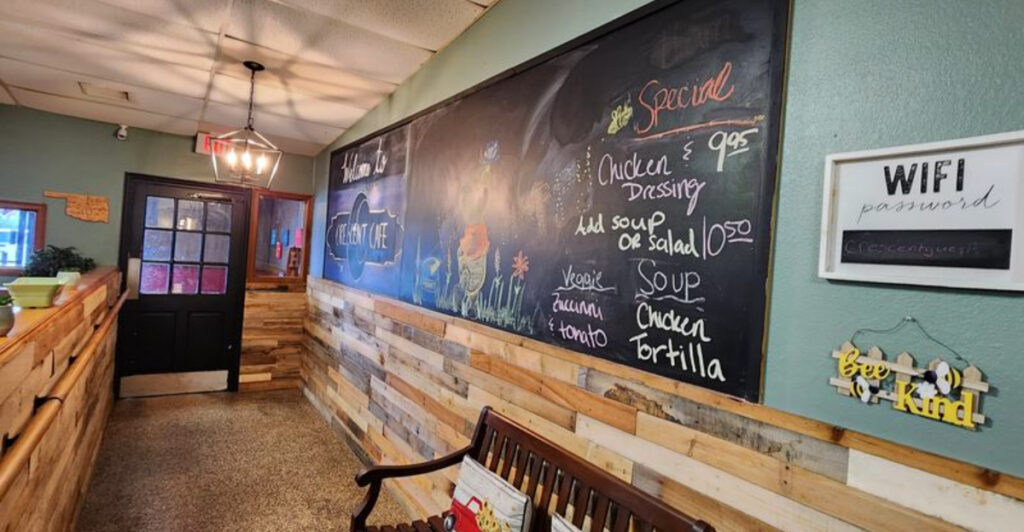 Welcome to
CRESCENT CAFE
Special
Chicken & 9.95
Dressing
Add soup
or salad 10.50
Veggie
Zuccinni
& tomato
Soup
Chicken
Tortilla
WIFI
password
Crescentguest
Bee
Kind